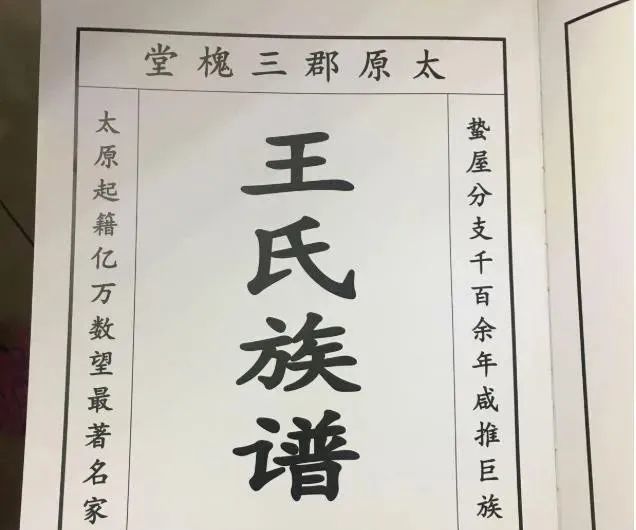 太原郡三槐堂
蛰屋分支千百余年咸推巨族
王氏族谱
太原起籍亿万数望最著名家